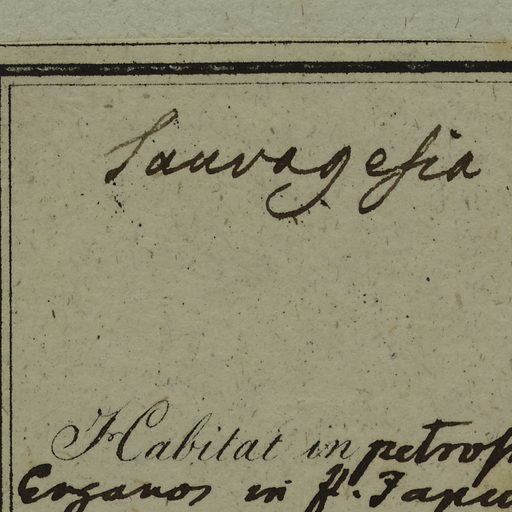 Sauvagesia
Habitat in petros
Enganos in fl. Japu